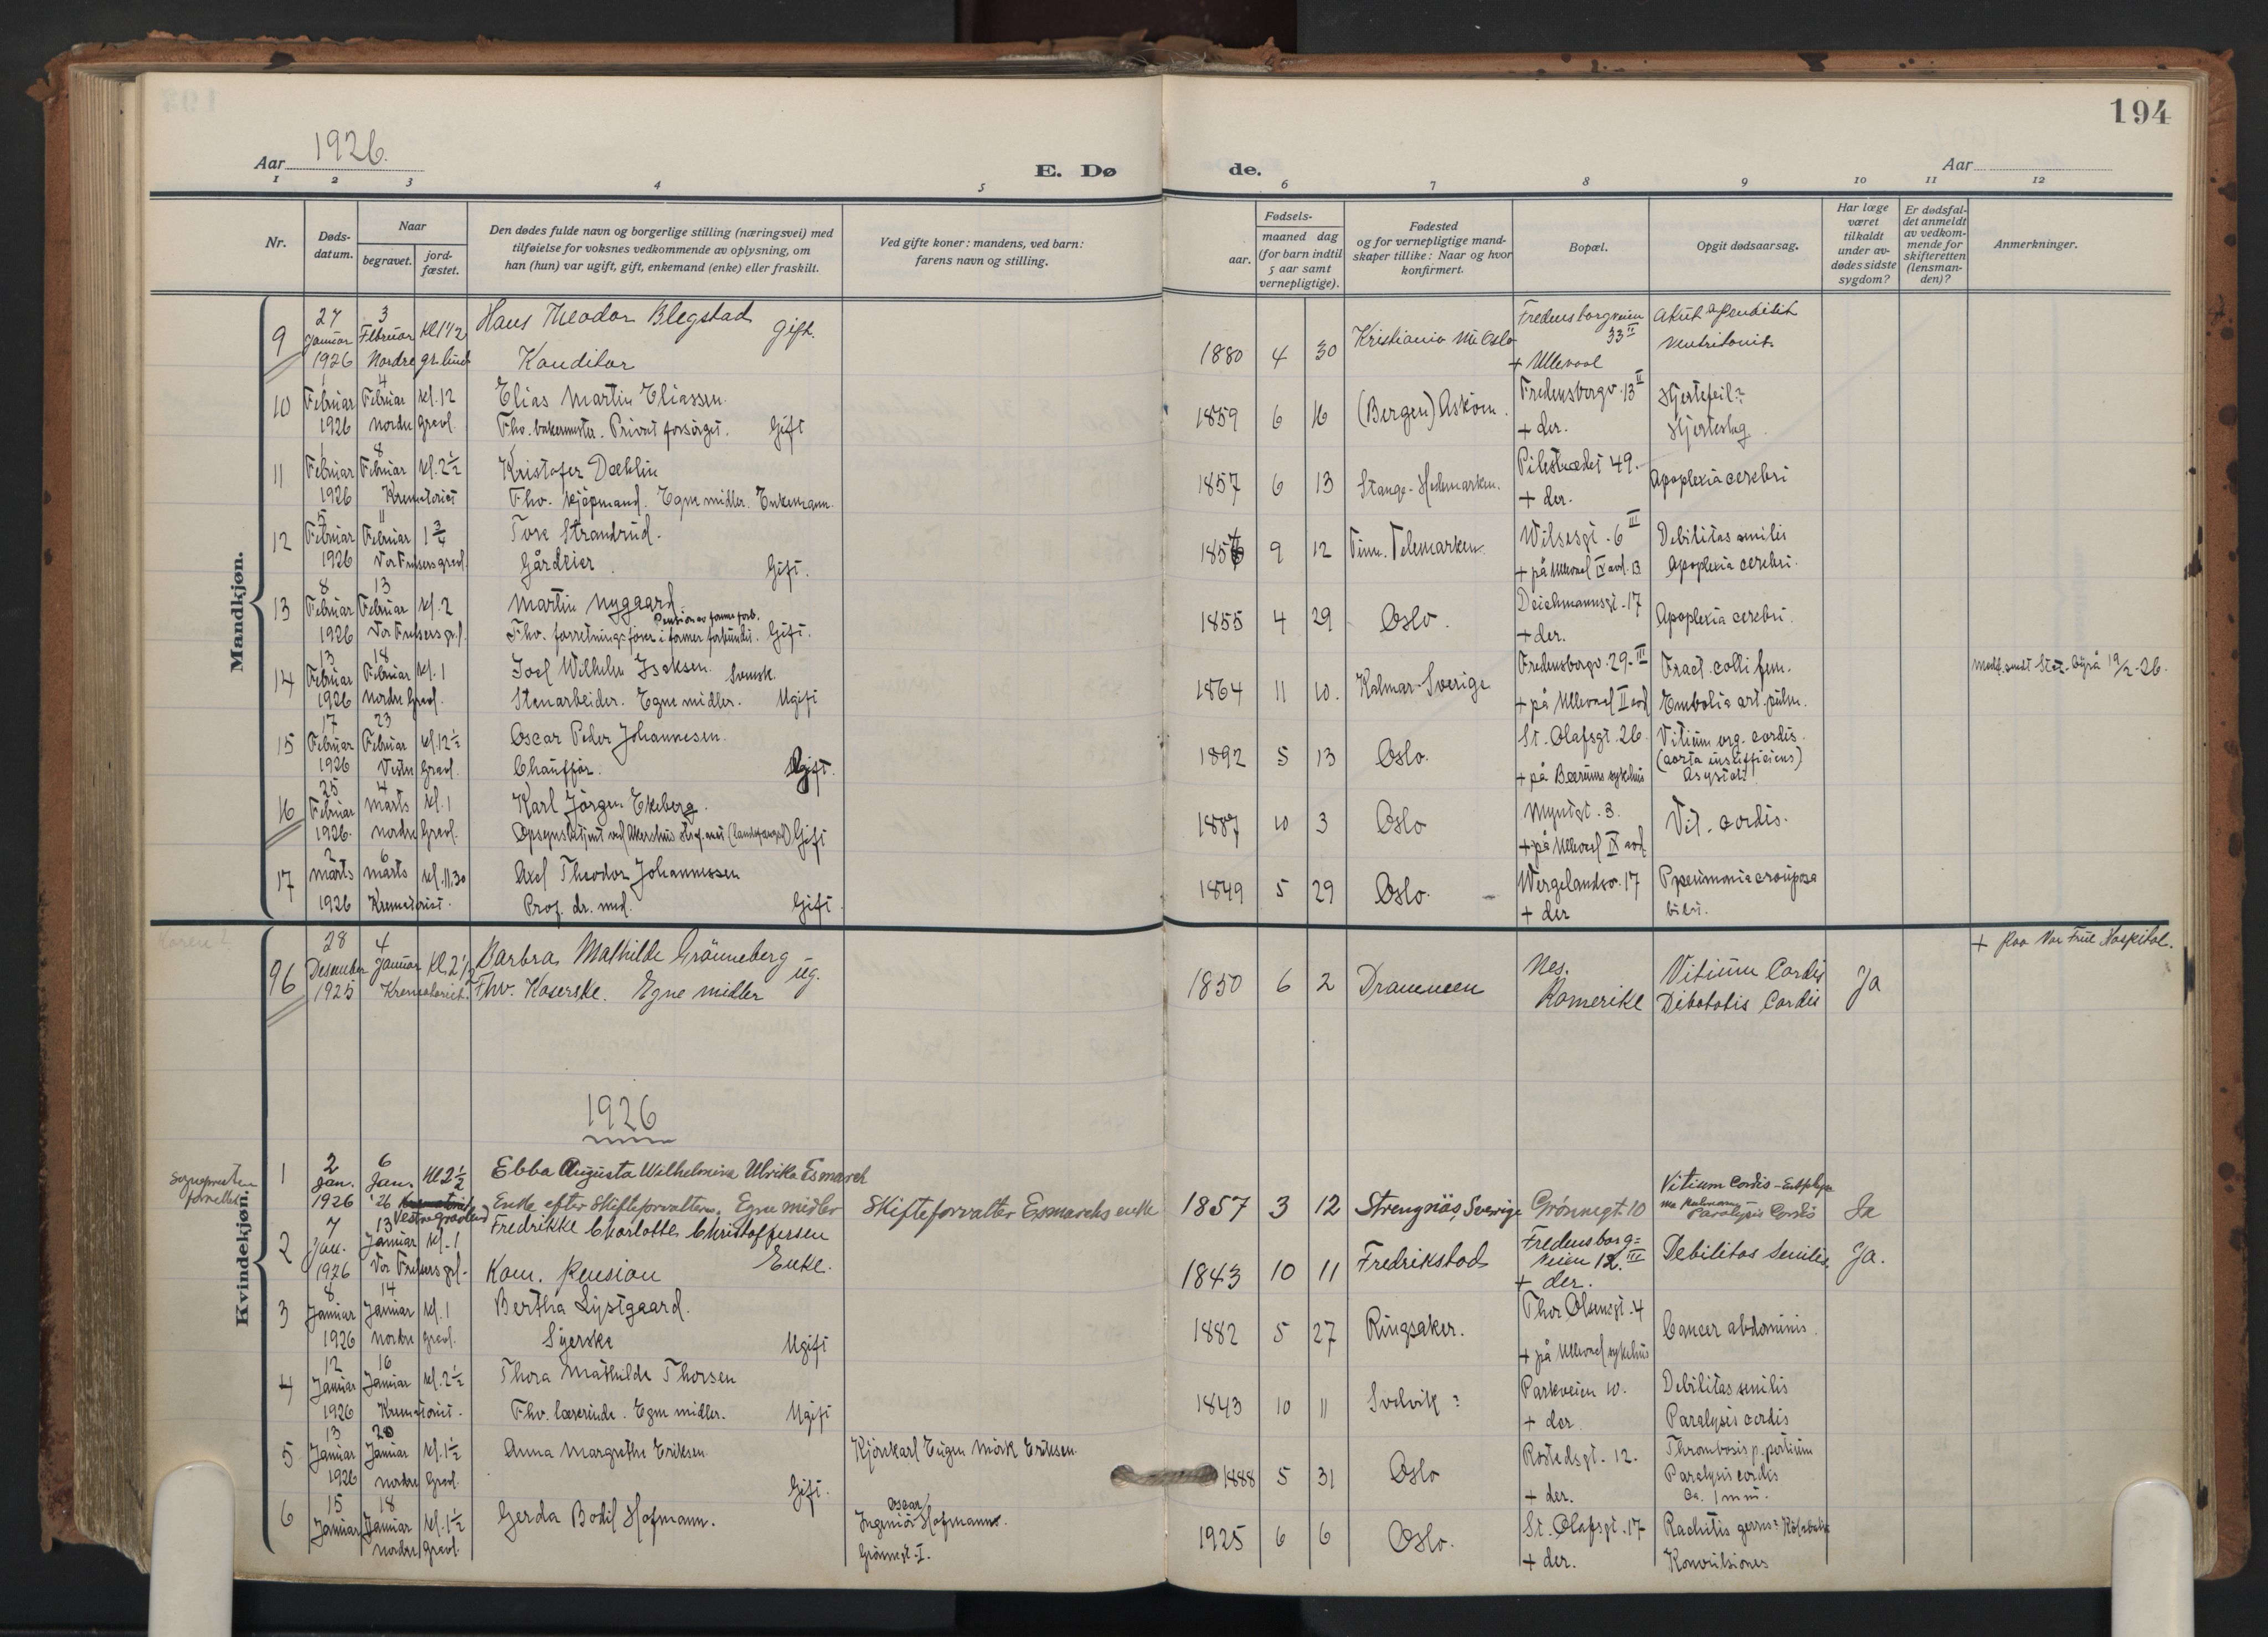 194
Aar 1926.
E. Dø de.
Aar
1 2 3 4 5 6 7 8 9 10 11 12
Nr.
Døds-
datum.
Naar
begravet.
jord-
fæstet.
Den dødes fulde navn og borgerlige stilling (næringsvei) med
tilføielse for voksnes vedkommende av oplysning, om
han (hun) var ugift, gift, enkemand (enke) eller fraskilt.
Ved gifte koner: mandens, ved barn:
farens navn og stilling.
Fødsels-
aar.
maaned dag
(for barn indtil
5 aar samt
vernepligtige).
Fødested
og for vernepligtige mand-
skaper tillike: Naar og hvor
konfirmert.
Bopæl.
Opgit dødsaarsag.
Har læge
været
tilkaldt
under av-
dødes sidste
sygdom?
Er dødsfal-
det anmeldt
av vedkom-
mende for
skifteretten
(lensman-
den)?
Anmerkninger.
Mandkjøn.
27 3 Hans Theodor Blegstad Fredensborgveien Akut
9 Januar Februar Kl 1 1/2 gift. 33 II
1926 Nordre gr.lund Konditor 1880 4 30 Kristiania nu Oslo + Ullevaal
1 4
10 Februar Februar kl. 12 Elias Martin Eliassen. Fredensborgv. 13 II Hjertefeil?
1926 nordre gravl. Fhv. bakermester. Privat forsørget. Gift 1859 6 16 (Bergen) Askøen. + der. Hjerteslag.
1 8
11 Februar Februar kl. 2 1/2 Kristofer Dæhlin Pilestrædet 49. Apoplexia cerebri
1926 Krematoriet Fhv. kjøpmand. Egne midler. Enkemann. 1857 6 13 Stange - Hedemarken. + der.
5 11
12 Februar Februar 1 3/4 Tore Strandrud. Wilsesgt. 6 III Debilitas senilis
1926 Vor Frelsers gravl. Gårdeier. Gift. 9 12 Tinn. Telemarken. + på Ullevaal IX avd. B Apoplexia cerebri.
8 13
13 Februar Februar kl. 2 Martin Nygaard. Deichmannsgt. 17 Apoplexia cerebri.
1926 Vor Frelsers gr.l. Fhv. forretningsfører i former forbundet. Gift. 1855 4 29 Oslo. + der.
13 18
14 Februar Februar kl. 1 Joel Wilhelm Isaksen. Svensk Fredensborgv. 29 - III Fract. colli fem. Medd. sendt Stat. byrå 19/2 - 26.
1926 nordre Gravl. Stenarbeider. Egne midler. Ugift 1864 11 10. Kalmar - Sverige + på Ullevaal II avd Embolia art. pulm.
17 23
15 Februar Februar kl. 12 1/2 Oscar Peder Johannesen. St. Olafsgt. 26. Vitium org. cordis.
1926 Vestre Gravl. Chauffør. Gift. 1892 5 13 Oslo. + på Bærums sykehus (aorta insufficiens)
Asystoli
25 4
16 Februar marts kl. 1 Karl Jørgen Ekeberg. Myntgt. 3. Vit. cordis.
1926. nordre Gravl. Opsynsbetjent ved Akershus Gift 1887 10 3 Oslo + på Ullevaal IX avd.
2 6
17 marts marts kl. 11.30 Axel Theodor Johannessen Wergelandsv. 17 Pneumonia crouposa
1926 Krematoriet. Prof. dr. med. Gift. 1849 5 29 Oslo. + der bilat.
Kvindekjøn.
28 4 + paa Vor Frue Hospital.
96 Desember Januar Kl. 2 1/2 Barbra Mathilde Grønneberg ug. Nes. Vitium Cordis
1925 Krematoriet. Fhv. Kaserske. Egne midler 1850 6 2 Drammen Romerike Cordis Ja
1926
Sognepresten
forrettet
2 6
1 Jan. Jan. Kl 2 1/2 Ebba Augusta Wilhelmina Ulrika Esmarch Vitium Cordis -
1926 '26 Vestre gravlund Enke efter Skifteforvalteren. Egne midler Skifteforvalter Esmarchs enke 1857 3 12 Strengnäs, Sverige Grønnegt. 10 Paralysis Cordis Ja
7 13
2 Jan. Januar kl. 1 Fredrikke Charlotte Christoffersen Fredensborg=
1926 Vor Frelsers gr.l. Kom. Pension Enke. 1843 10 11 Fredrikstad veien 12. III Debilitas Senilis. Ja.
+ der.
8 14
3 Januar Januar kl. 1 Bertha Lystgaard. Thor Olsensgt. 4 Cancer abdominis.
1926 nordre gravl. Syerske Ugift 1882 5 27 Ringsaker. + på Ullevaal sykehus
12 16
4 Januar Januar kl. 2 1/2 Thora Mathilde Thorsen Parkveien 10. Debilitas senilis
1926 Krematoriet. Fhv. lærerinde. Egne midler. Ugift 1843 10 11 Svelvik? + der. Paralysis cordis
13 20
5 Januar Januar kl. 1 1/2 Anna Margrethe Eriksen Kjørekarl Eugen Mörk Eriksen. Rostedsgt. 12. Thrombosis p. partum
1926 nordre Gravl. Gift. 1888 5 31 Oslo + der. Paralysis cordis
15 18
6 Januar Januar kl. 1 1/2 Gerda Bodil Hofmann. Ingeniør Oscar Hofmann. St. Olafsgt. 17 Rachitis
nordre gravl. Grønnegt. I. 1925 6 6 Oslo. + der. Konvulsiones